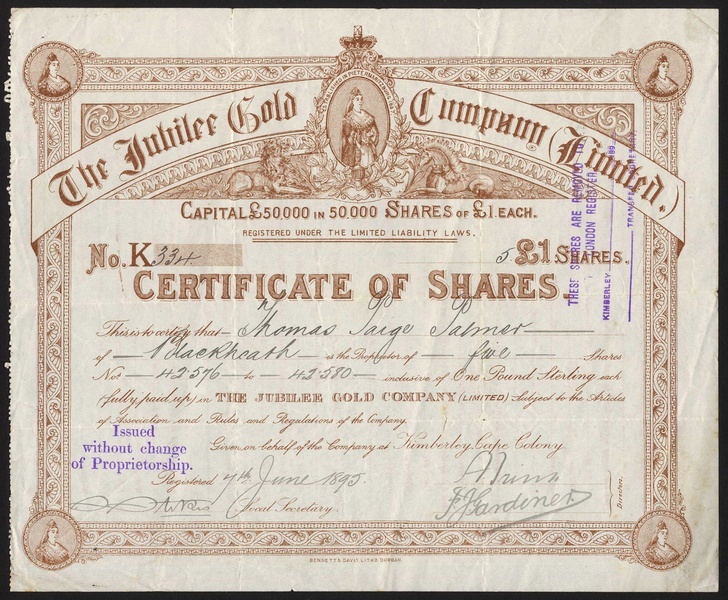 The Jubilee Gold Company (Limited.)
CAPITAL £50,000 IN 50,000 SHARES OF £1 EACH.
REGISTERED UNDER THE LIMITED LIABILITY LAWS.
No. K.334
5 £1 SHARES.
CERTIFICATE OF SHARES.
This is to certify that Thomas Paige Palmer
of Blackheath is the Proprietor of five Shares
Nos 42576 to 42580 inclusive of One Pound Sterling each
(fully paid up) in THE JUBILEE GOLD COMPANY (LIMITED) Subject to the Articles
of Association and Rules and Regulations of the Company.
Given on behalf of the Company at Kimberley, Cape Colony
Issued
without change
of Proprietorship.
Registered 7th June 1895
Local Secretary.
F Gardiner
Director.
THESE SHARES ARE REMOVED TO
LONDON REGISTER
KIMBERLEY 189
TRANSFER SECRETARY.
BENNETT & DAVIS LITHO DURBAN.